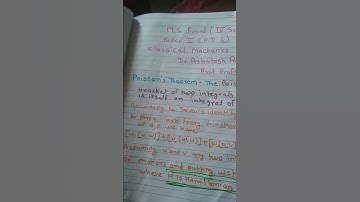 M.S. Final (IV Se
Paper II (P.D.E)
Classical Mechanics
Dr. Ashutosh
Asst Prof
Poisson's Theorem - The Pois
bracket of two integrals
is itself an integral of
According to Jacobi's identit
for three arbitrary function
of q, p we have
[u, [v, w]] + [v, [w, u]] + [w [u, v
Assuming u and v any two in
of motion and putting w = H
where H is Hamiltonian